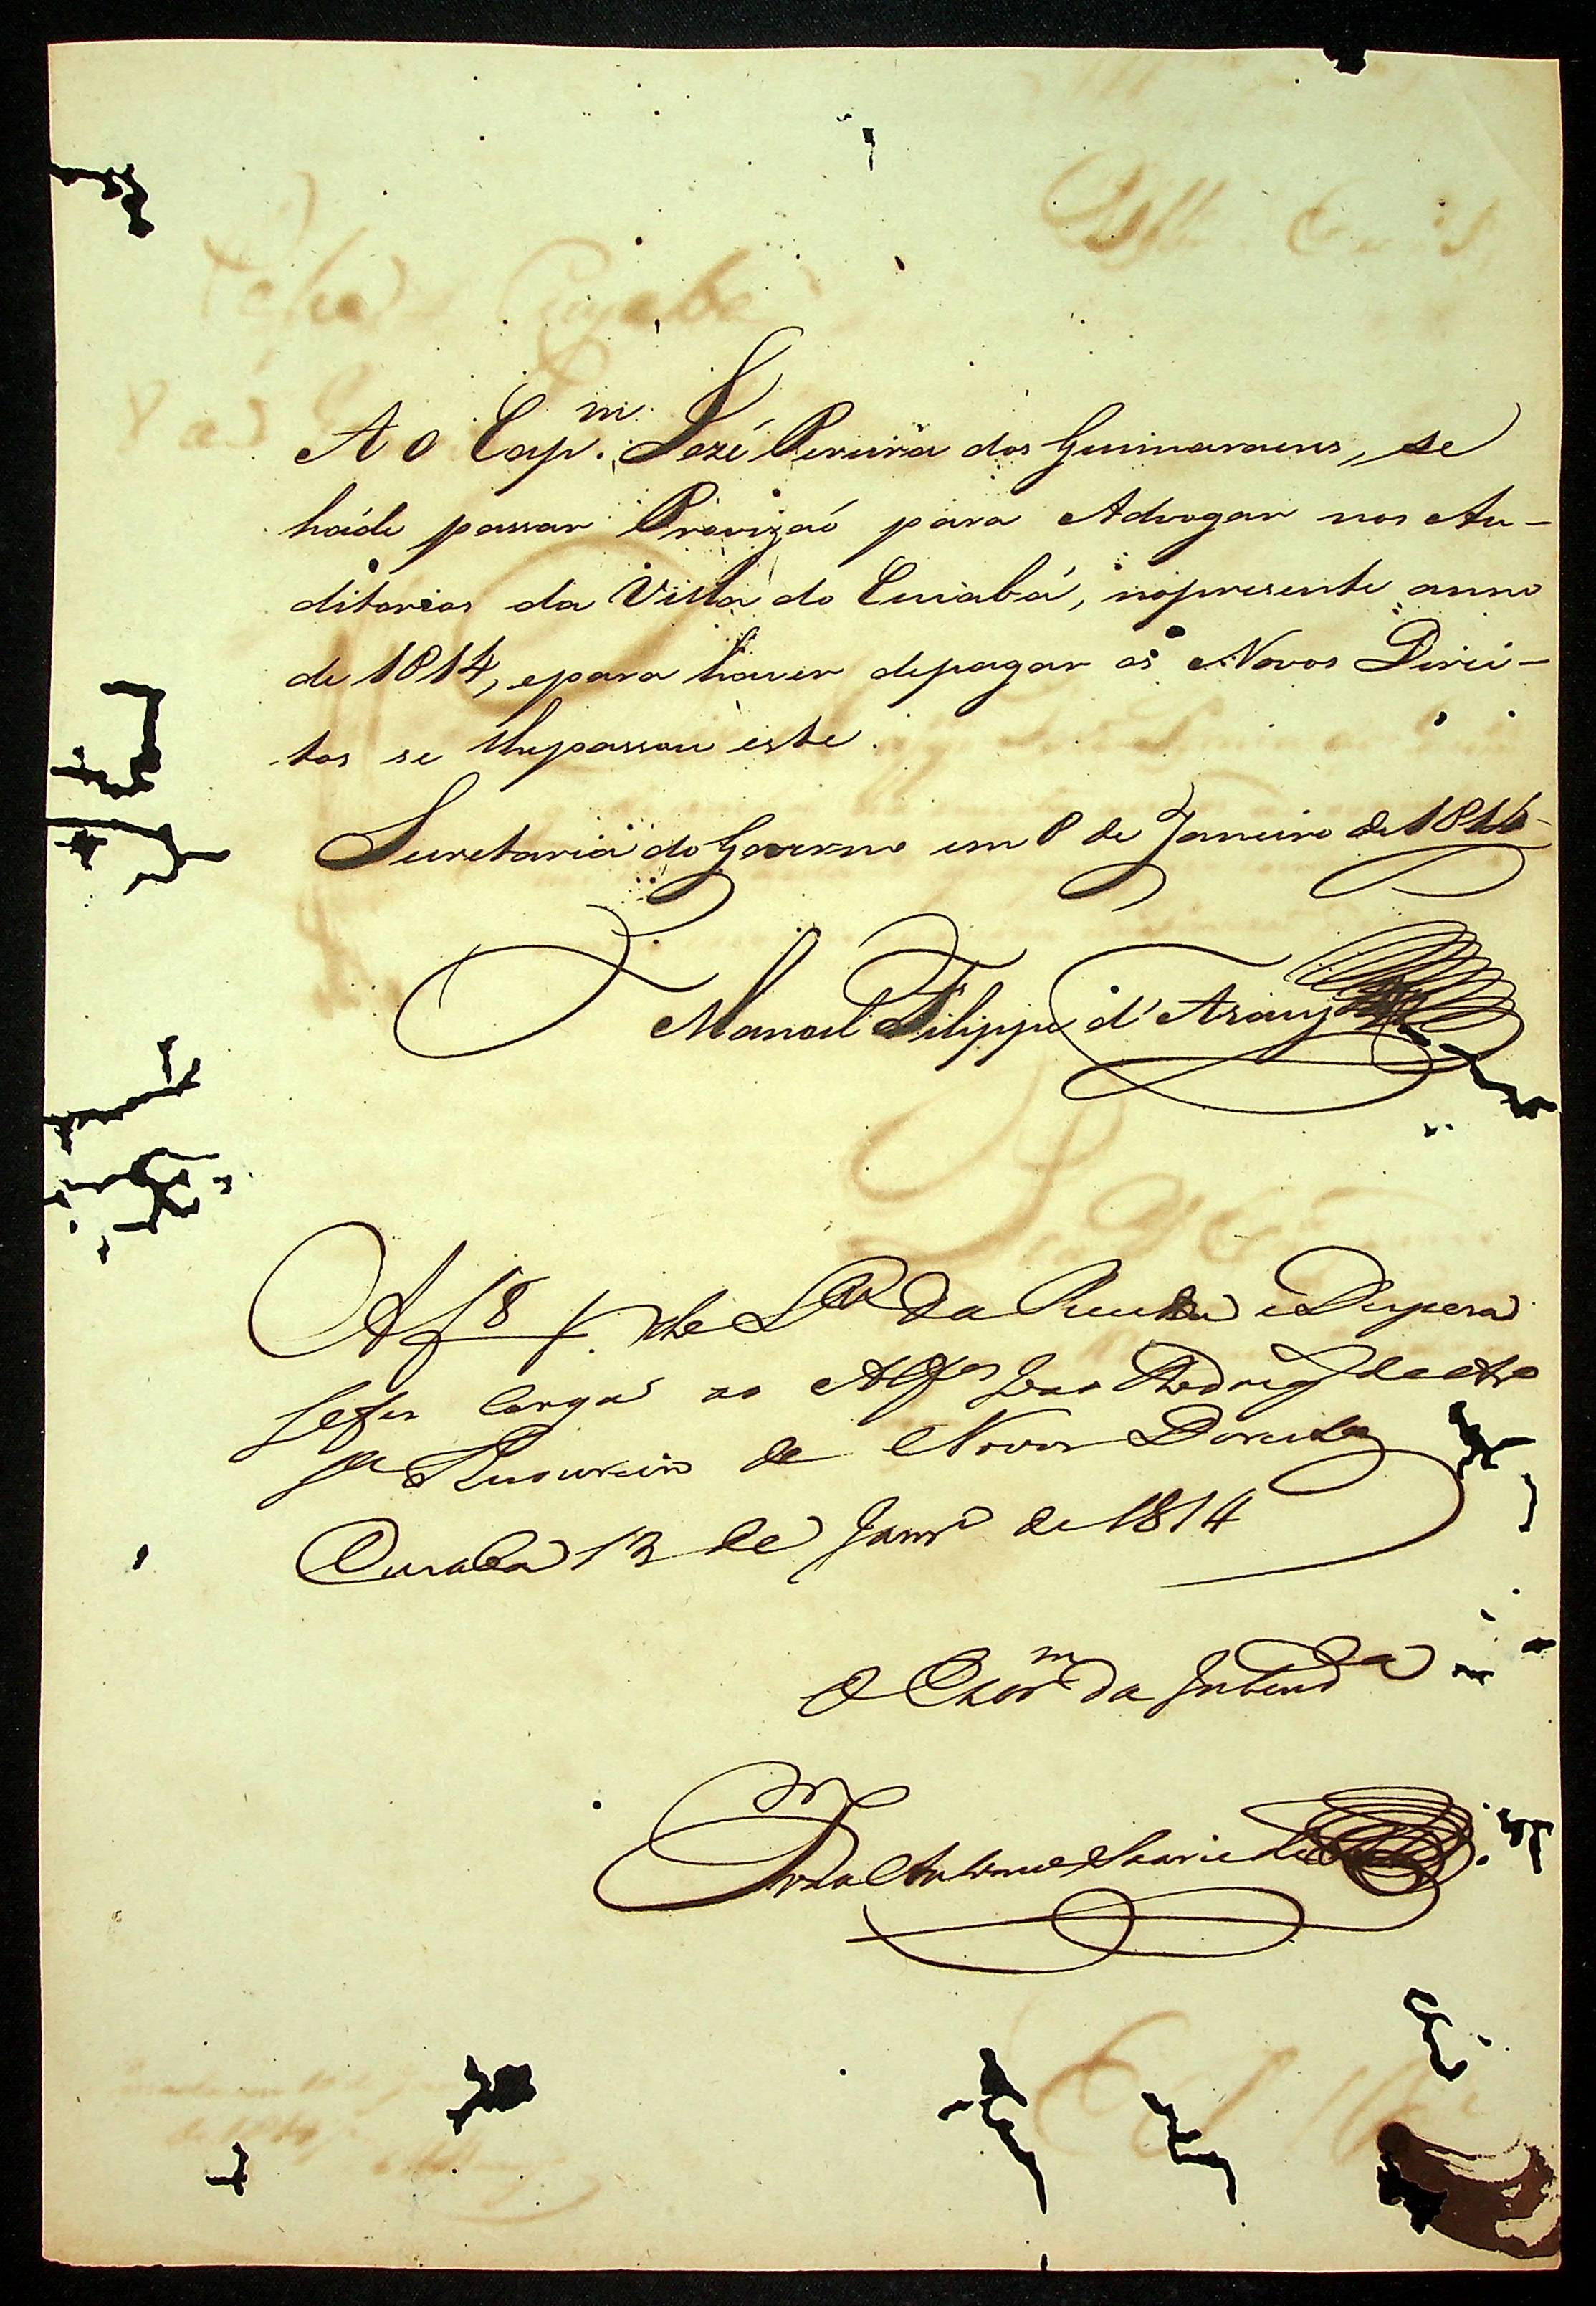 Ao Cap.m Jozé Pereira dos Guimaraens, se
háde passar Provizaó para Advogar nos Au-
ditorios da Villa do Cuiabá, nopresente anno
de 1814, epara haver depagar os Novos Direi-
tos se lhepassou este.
Secretaria do Governo em 8 de Janeiro de 1814
Manoel Filippe d'Araujo
Af 8 V. de L.o da Receita e Despeza
Sefes Carga ao Alfes João Rodrig
Thesoureiro de Novos Direitos
Cuiaba 13 de Janro de 1814
O Escrm da Intenda
Antonio